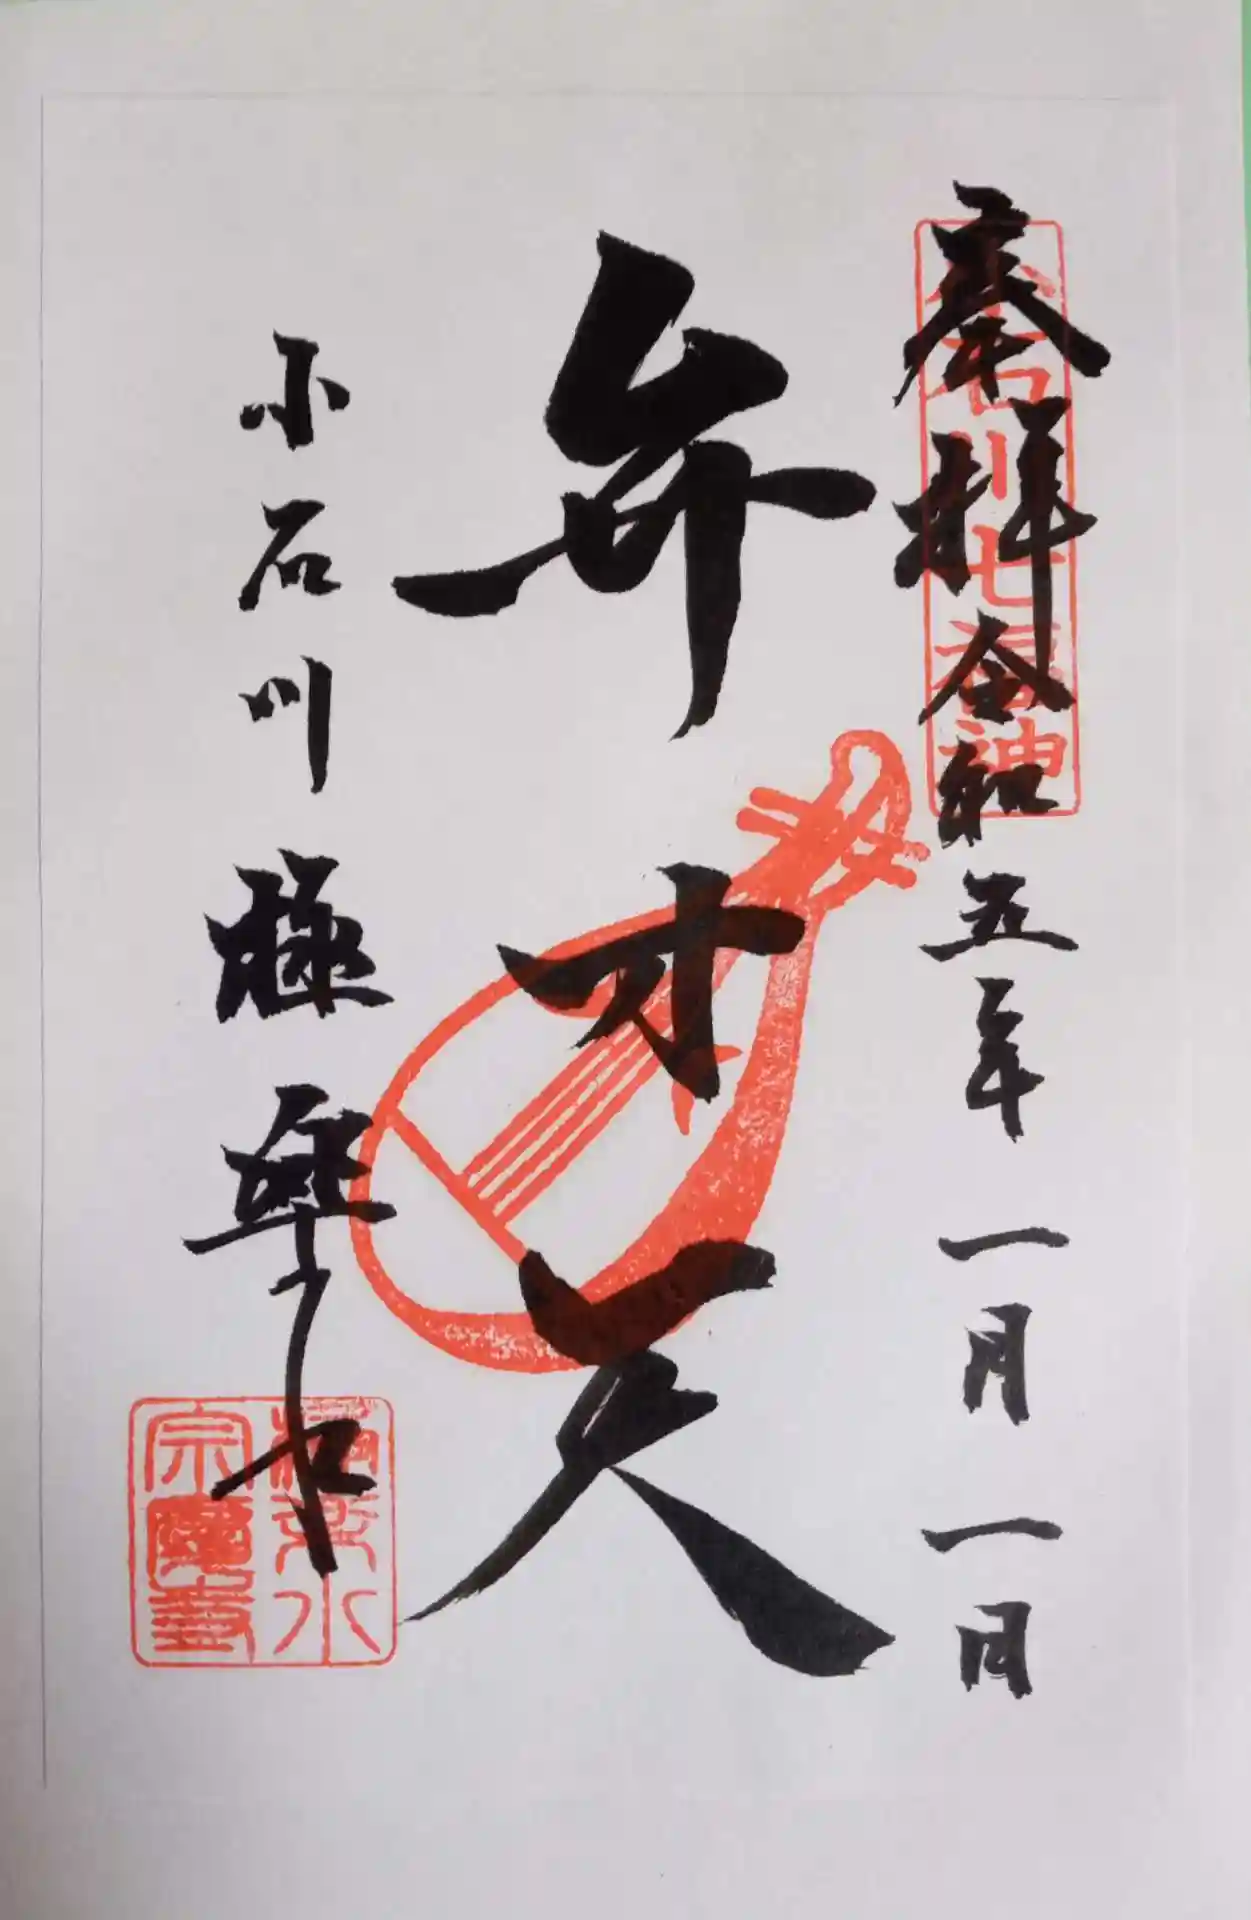 奉拝 令和五年 一月一日
小石川七福神
弁才天
小石川 極楽水
極楽水
宗慶寺